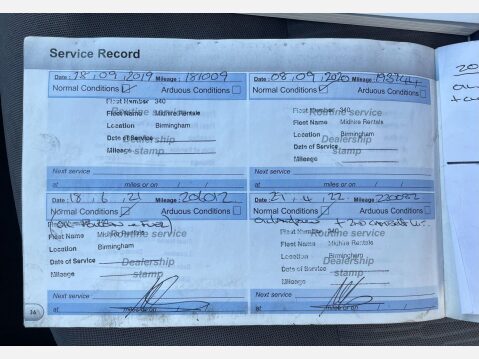 Service Record
Date: 18, 09, 2019 Mileage: 181009
Normal Conditions ☑ Arduous Conditions ☐
Fleet Number 340
Routine service
Fleet Name Midhire Rentals
Location Birmingham
Date of Service
Dealership
Mileage
stamp
Next service
at miles or on / /
Date: 08, 09, 2020 Mileage:
Normal Conditions ☑ Arduous Conditions ☐
Fleet Number 340
Routine service
Fleet Name Midhire Rentals
Location Birmingham
Dealership
Date of Service
stamp
Mileage
Next service
at miles or on / /
Date: 18, 6, 21 Mileage: 206012
Normal Conditions ☑ Arduous Conditions ☐
+ Fuel
Routine service
Fleet Name Midhire Rentals
Location Birmingham
Date of Service
Dealership
Mileage
stamp
Next service
at miles or on / /
Date: 21, 4, 22 Mileage:
Normal Conditions ☑ Arduous Conditions ☐
Fleet Number 340
Routine service
Fleet Name Midhire Rentals
Location Birmingham
Dealership
Date of Service
stamp
Mileage
Next service
at miles or on / /
20